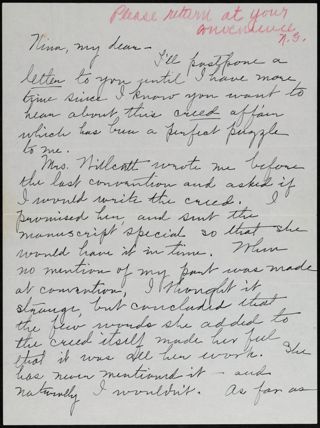 Please return at your
convenience
N.S.
Nina, my dear—
I'll postpone a
letter to you until I have more
time since I know you want to
hear about this creed affair
which has been a perfect puzzle
to me.
Mrs. Willcott wrote me before
the last convention and asked if
I would write the creed. I
promised her, and sent the
manuscript special so that she
would have it in time. When
no mention of my part was made
at convention, I thought it
strange, but concluded that
the few words she added to
the creed itself made her feel
that it was all her work. She
has never mentioned it – and
naturally I wouldn't. As far as